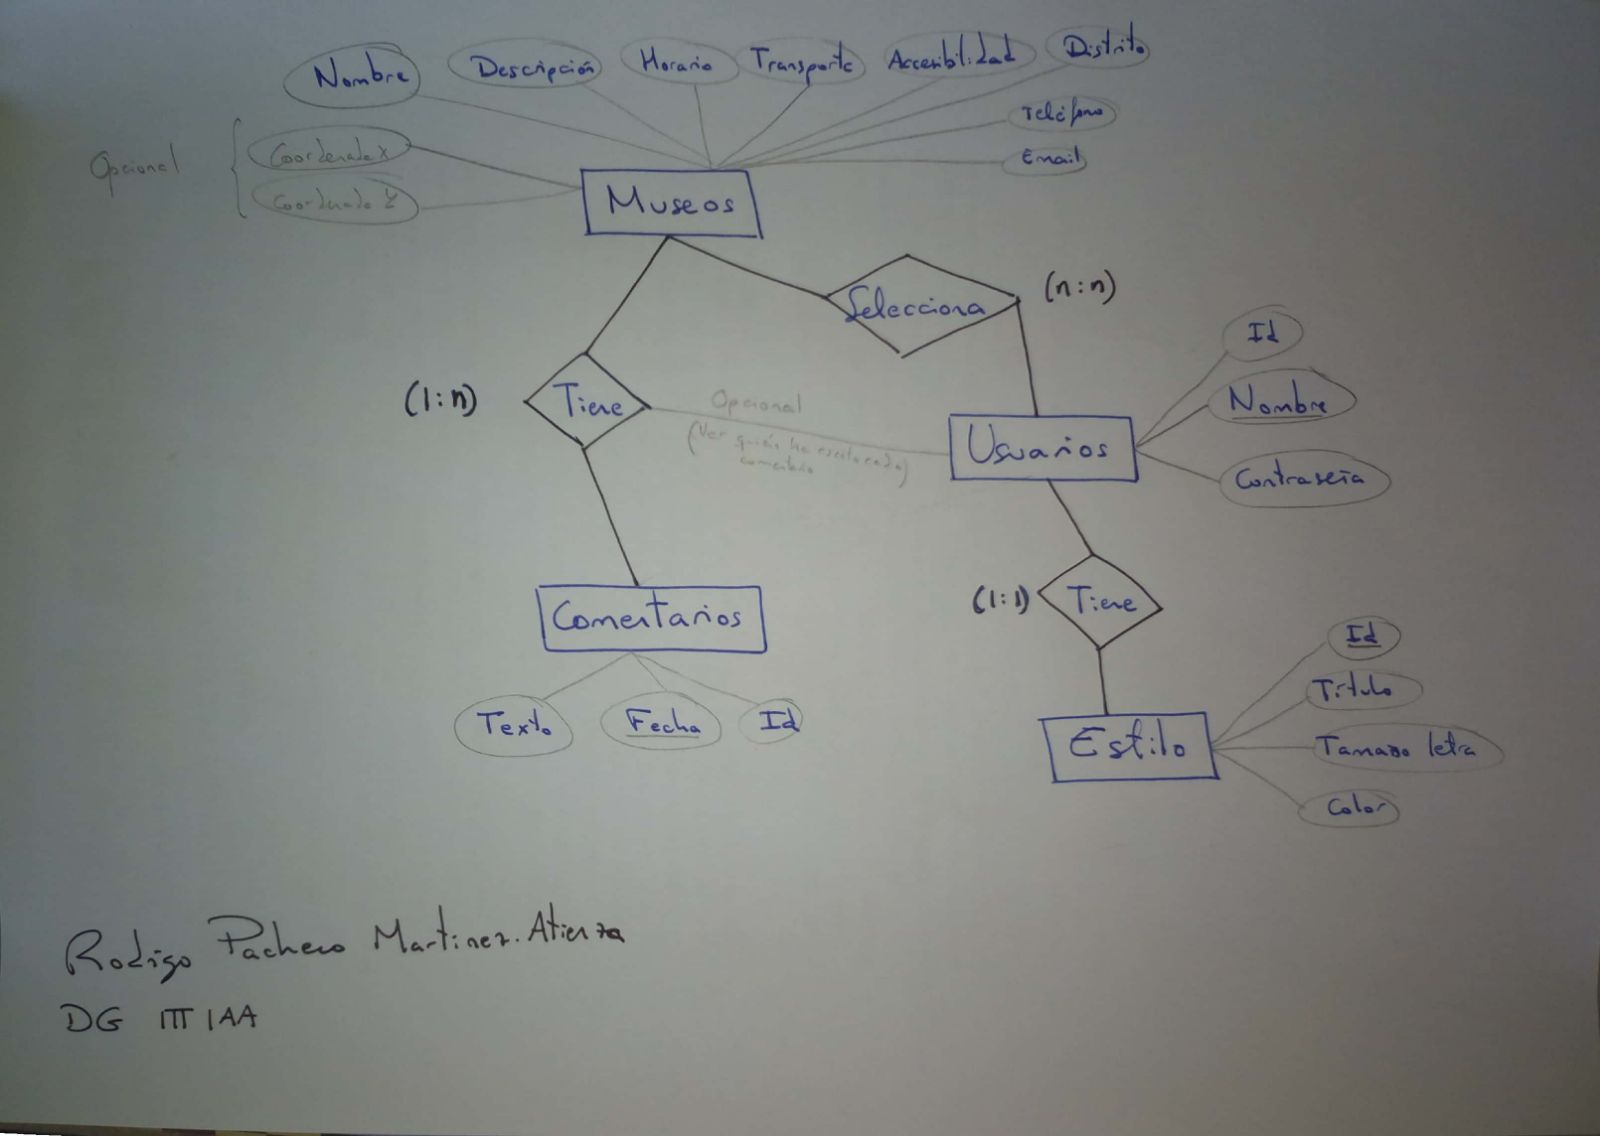 Nombre
Descripción
Horario
Transporte
Accesibilidad
Distrito
Teléfono
Email
Opcional
Coordenada X
Coordenada Y
Museos
Selecciona
(n:n)
(1:n)
Tiene
Opcional
(Ver quién ha escrito cada
comentario)
Usuarios
Id
Nombre
Contraseña
Comentarios
Texto
Fecha
Id
(1:1)
Tiene
Estilo
Id
Título
Tamaño letra
Color
Rodrigo Pacheco Martinez-Atienza
DG ITT IAA